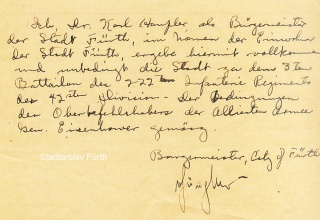 Ich, Dr. Karl Häupler als Bürgermeister
der Stadt Fürth, im Namen der Einwohner
der Stadt Fürth, ergebe hiermit vollkommen
und unbedingt die Stadt zu dem 3ten
Battailon des 222ten Infanterie Regiments
der 42ten Division - der Bedingungen
des Oberbefehlshabers der Allierten Armee
Gen. Eisenhower gemäss.
Burgermeister, City of Fürth
Stadtarchiv Fürth